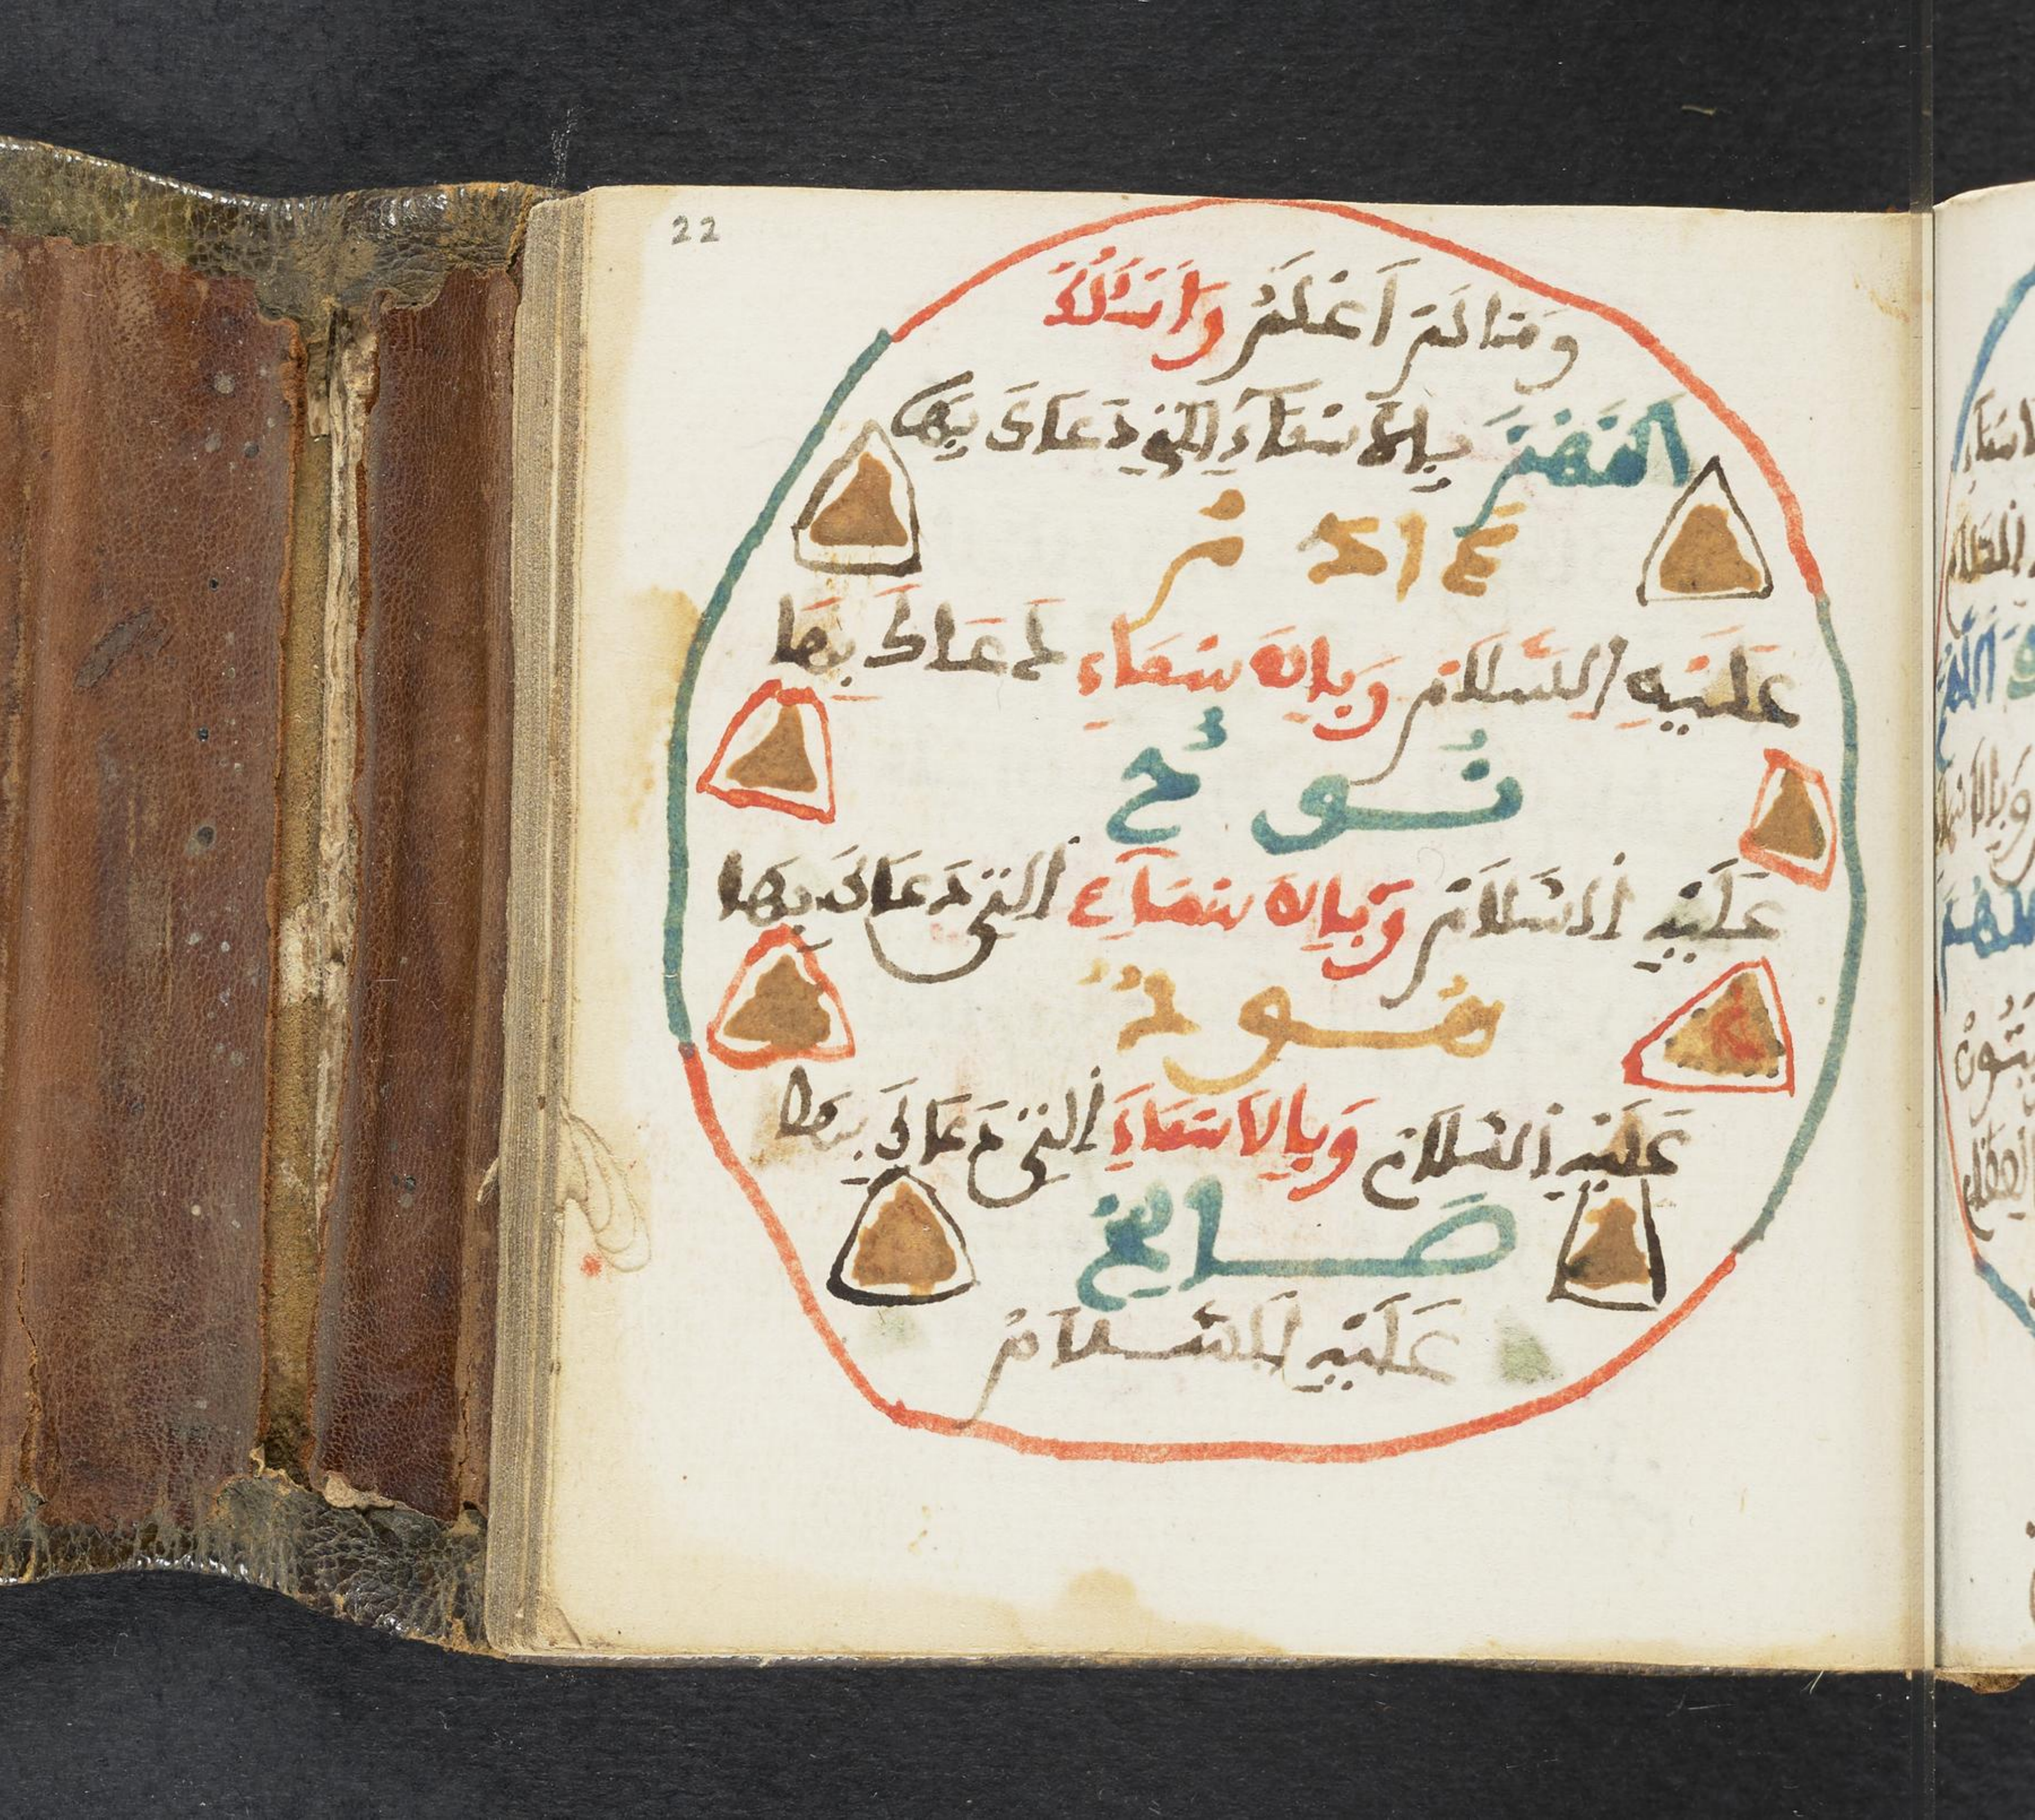 22
وَمَا لَمَ اَعْلَمُ وَاَسْـَٔلُكَ
اللَّهُمَّ بِالاَسْمَآءِ الَّتِي دَعَاكَ بِهَا
ءَادَمُ
عَلَيْهِ السَّلَامُ وَبِالاَسْمَاءِ دَعَاكَ بِهَا
نُوحٌ
عَلَيْهِ السَّلَامُ وَبِالاَسْمَآءِ الَّتِي دَعَاكَ بِهَا
هُودٌ
عَلَيْهِ السَّلَامُ وَبِالاَسْمَاءِ الَّتِي دَعَاكَ بِهَا
صَالِحٌ
عَلَيْهِ السَّلَامُ